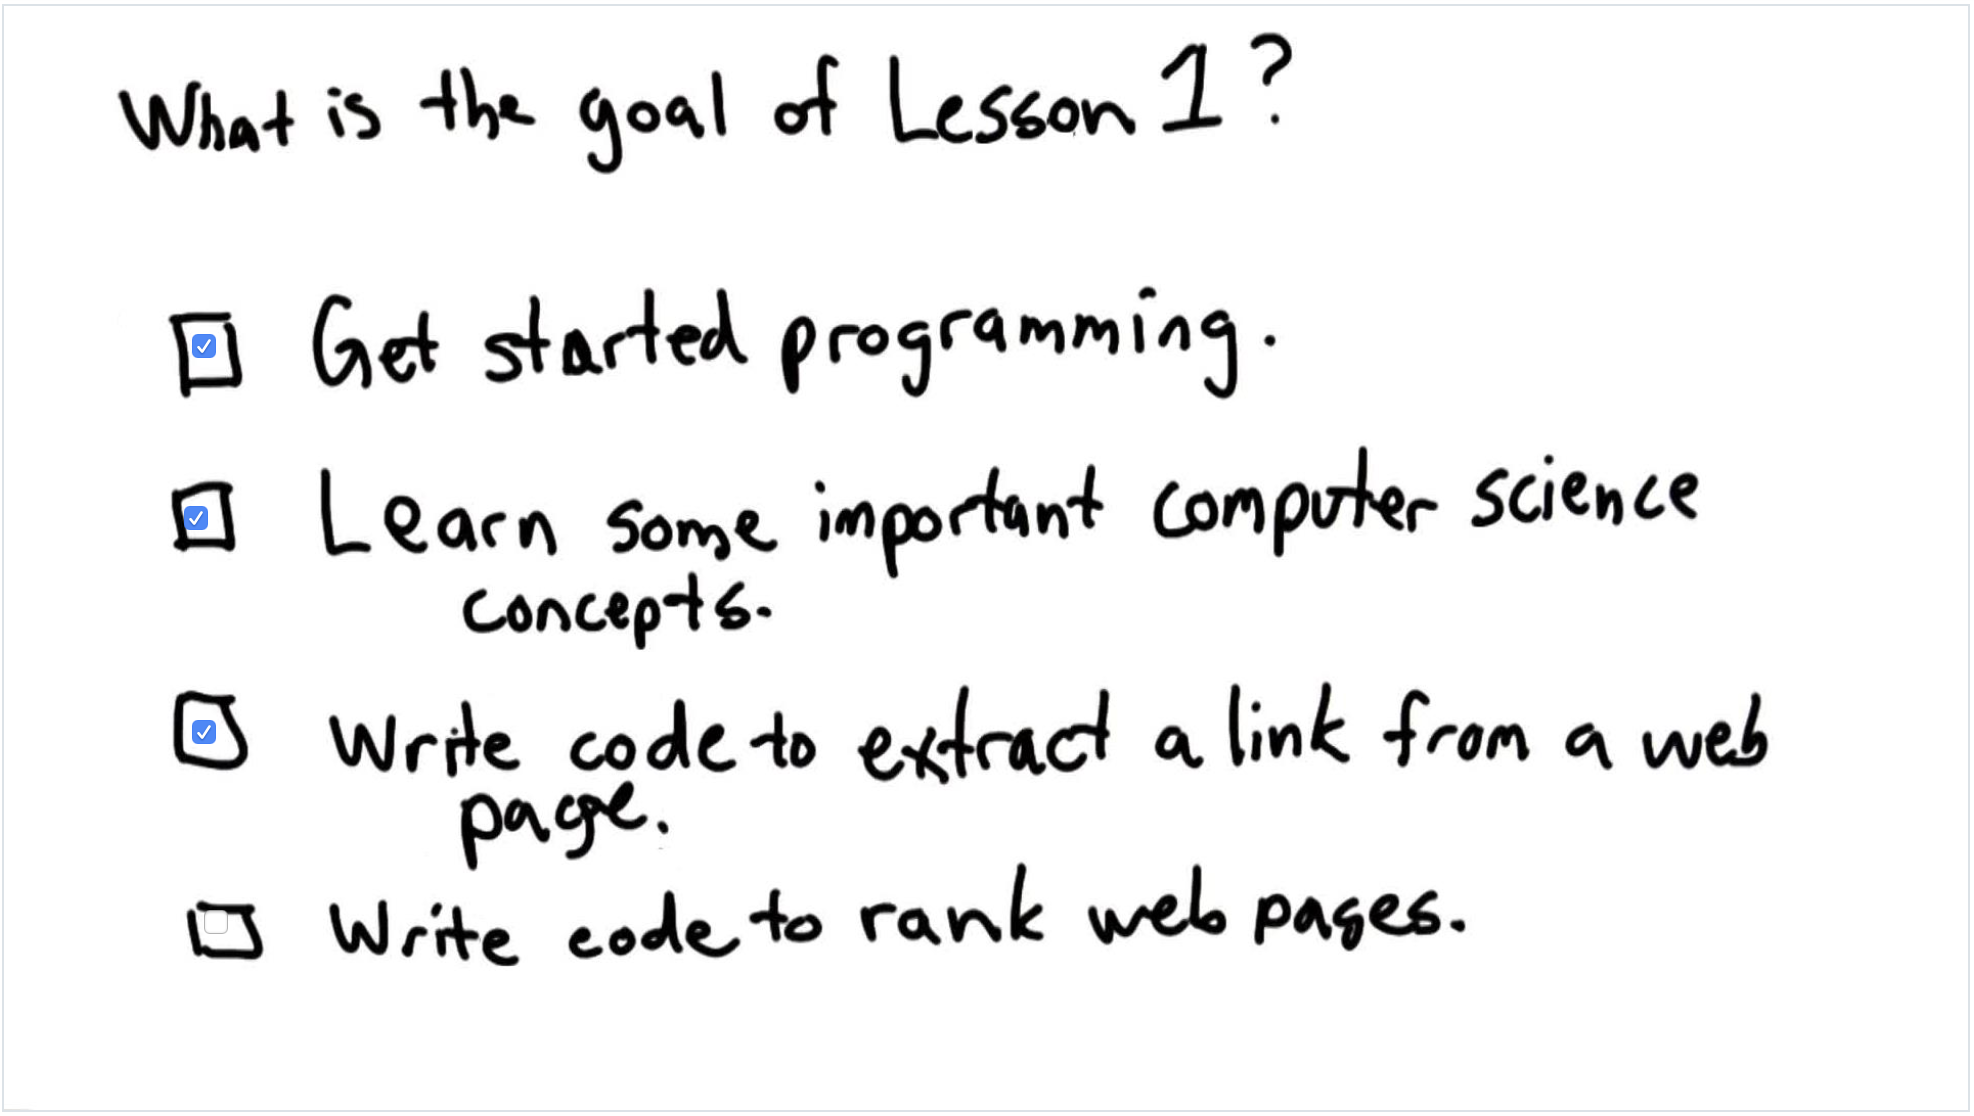 What is the goal of Lesson 1?
Get started programming.
Learn some important computer science
concepts.
Write code to extract a link from a web
page.
Write code to rank web pages.